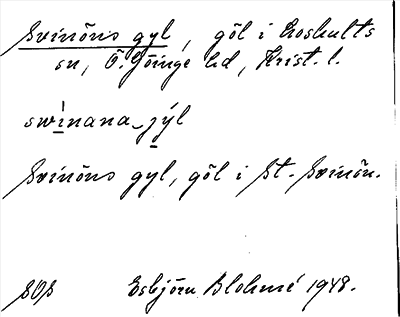 Svinöns gyl, göl i Loshults
sn, Ö. Göinge hd, Krist. l.
swinana-jýl
Svinöns gyl, göl i St. Svinön.
SOS Esbjörn Blohmé 1948.